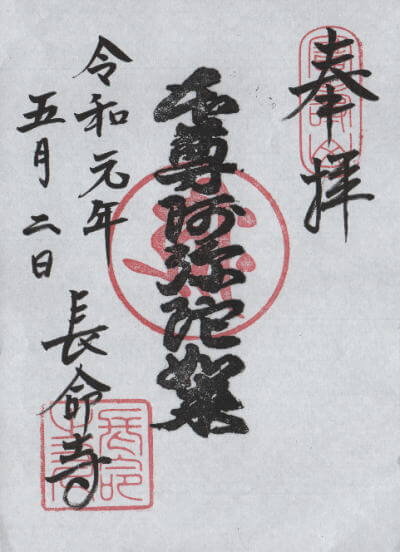 奉拝
本尊阿弥陀如来
令和元年
五月二日
長命寺
長命寺